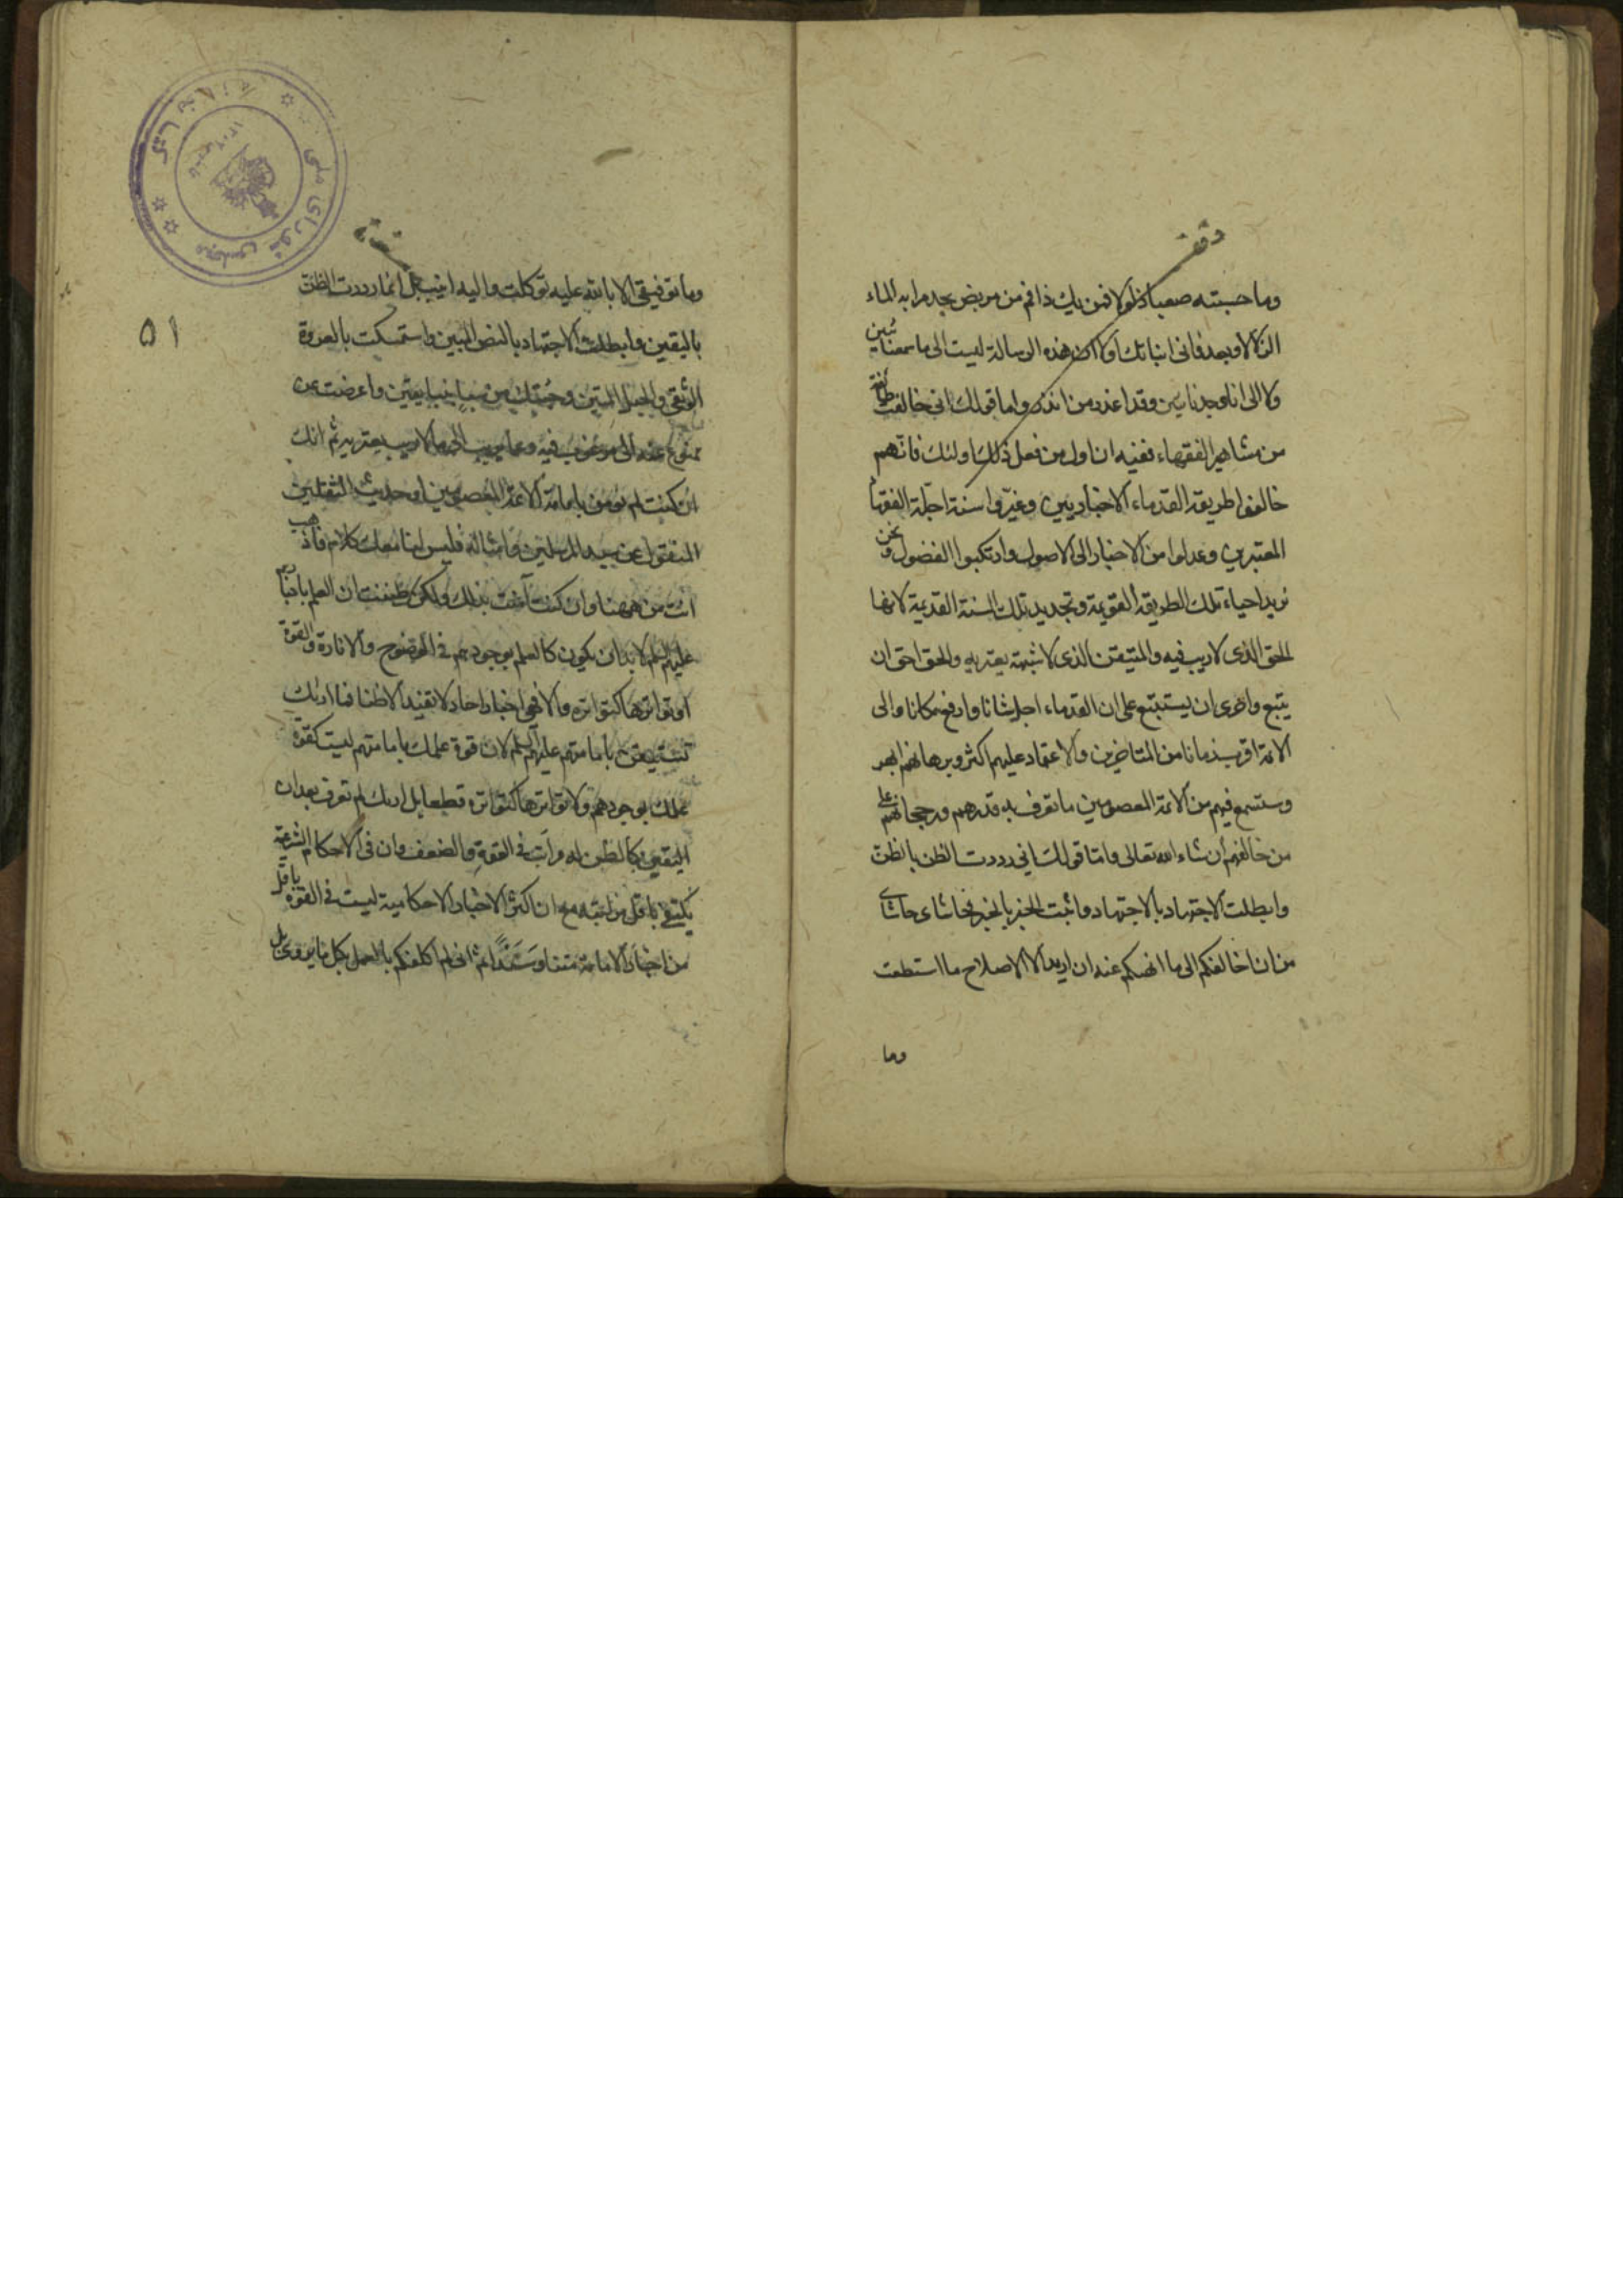 وقف
وما حسبته صعبا ذلولا فمن يك ذا فم من مريض يجد مرا به الماء
الزلالا وبعد فاني انباتك اولا ان هذه الرسالة ليست الى ما سمعنا بين
ولا الى انا وجدنا بين وقد اعذر من انذر واما قولك اني خالفت طائفة
من مشاهير الفقهاء ففيه ان اول من فعل ذلك اولئك فانهم
خالفوا طريقة القدماء الاخباريين وغيروا سنة اجلة الفقها
المعتبرين وعدلوا من الاخبار الى الاصول وارتكبوا الفضول ونحن
نريد احياء تلك الطريقة القويمة وتجديد تلك السنة القديمة لانها
الحق الذي لا ريب فيه والمتيقن الذي لا شبهة يعتريه والحق احق ان
يتبع واحرى ان يستتبع على ان القدماء اجل شانا وارفع مكانا والى
الائمة اقرب زمانا من المتاخرين والاعتماد عليهم اكثر وبرهانهم ابهر
وستسمع فيهم من الائمة المعصومين ما تعرف به قدرهم ورجحانهم على
من خالفهم ان شاء الله تعالى واما قولك اني رددت الظن بالظن
وابطلت الاجتهاد بالاجتهاد واثبت الخبر بالخبر فحاشاى حاشاى
من ان اخالفكم الى ما انهيكم عنه ان اريد الا الاصلاح ما استطعت
وما
وما توفيقي الا بالله عليه توكلت واليه انيب بل انما رددت الظن
باليقين وابطلت الاجتهاد بالنص المبين واستمسكت بالعروة
الوثقى والحبل المتين وجئتك من سبإ بنبإ يقين واعرضت عن
عنه الى مرغوب فيه وعما يريب الى ما لا ريب يعتريه ثم انك
ان كنت لم تؤمن بامامة الائمة المعصومين او حديث الثقلين
المنقول عن سيد المرسلين وامثاله فليس لنا معك كلام فاذهب
انت من ههنا وان كنت آمنت بذلك ولكن ظننت ان العلم باخبارهم
عليهم السلم لا بد ان يكون كالعلم بوجودهم في الوضوح والانارة والقوة
او تواترها كتواتره والا فهي اخبار احاد لا تفيد الا ظنا فما اراك
تستيقن بامامتهم عليهم السلم لان قوة علمك بامامتهم ليست كقوة
علمك بوجودهم ولا تواترها كتواتره قطعا بل اراك لم تعرف بعد ان
اليقين كالظن له مراتب في القوة والضعف وان في الاحكام الشرعية
يكتفى باقل مراتبه مع ان اكثر الاخبار الاحكامية ليست في القوة باقل
من اخبار الامامة متنا وسندا ثم اني لم اكلفكم بالعمل بكل ما يروى بل
۵۱
مجلس شورای ملی